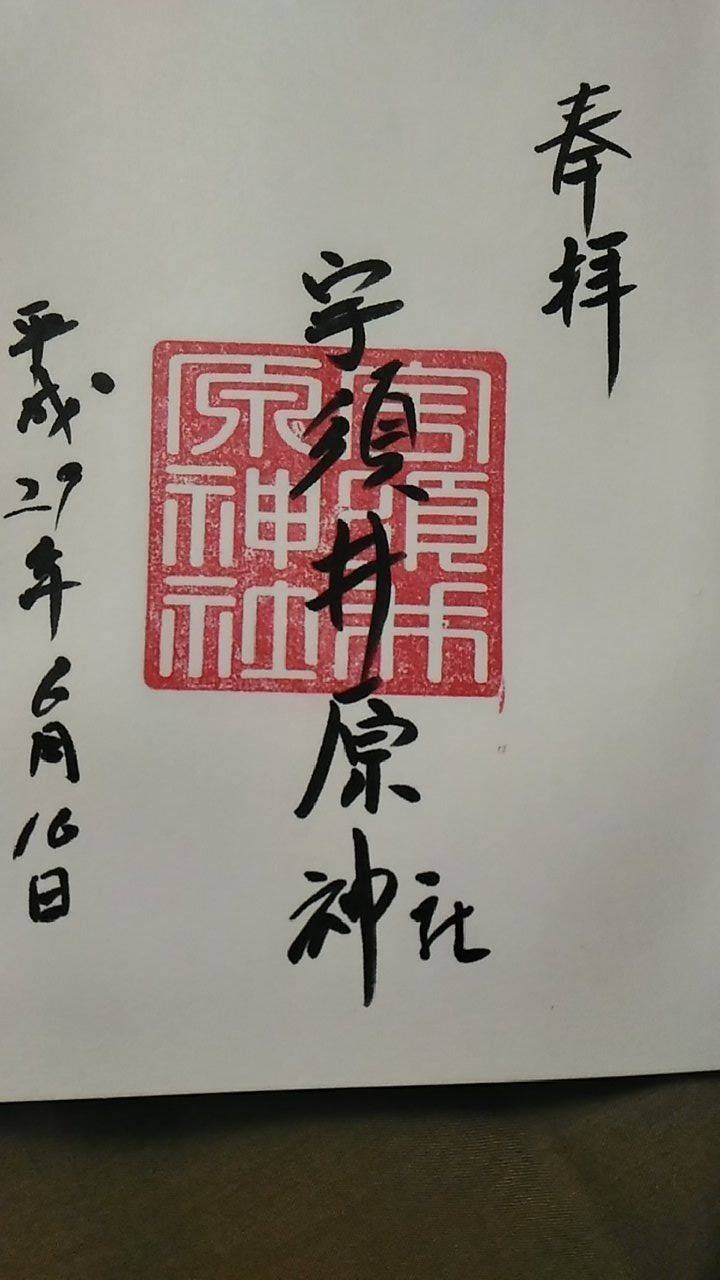 奉拝
宇須井原神社
宇須井
原神社
平成29年6月16日